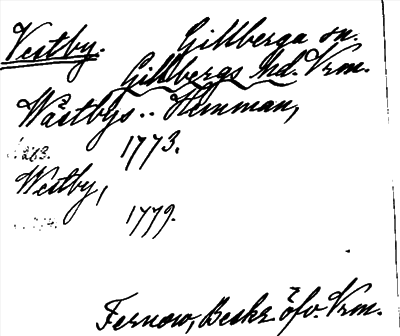 Vestby. Gillberga sn.
Gillbergs hd. Vrm.
Wästbys.. Hemman,
283. 1773.
Westby,
1779.
Fernow, Beskr. öfv. Vrm.